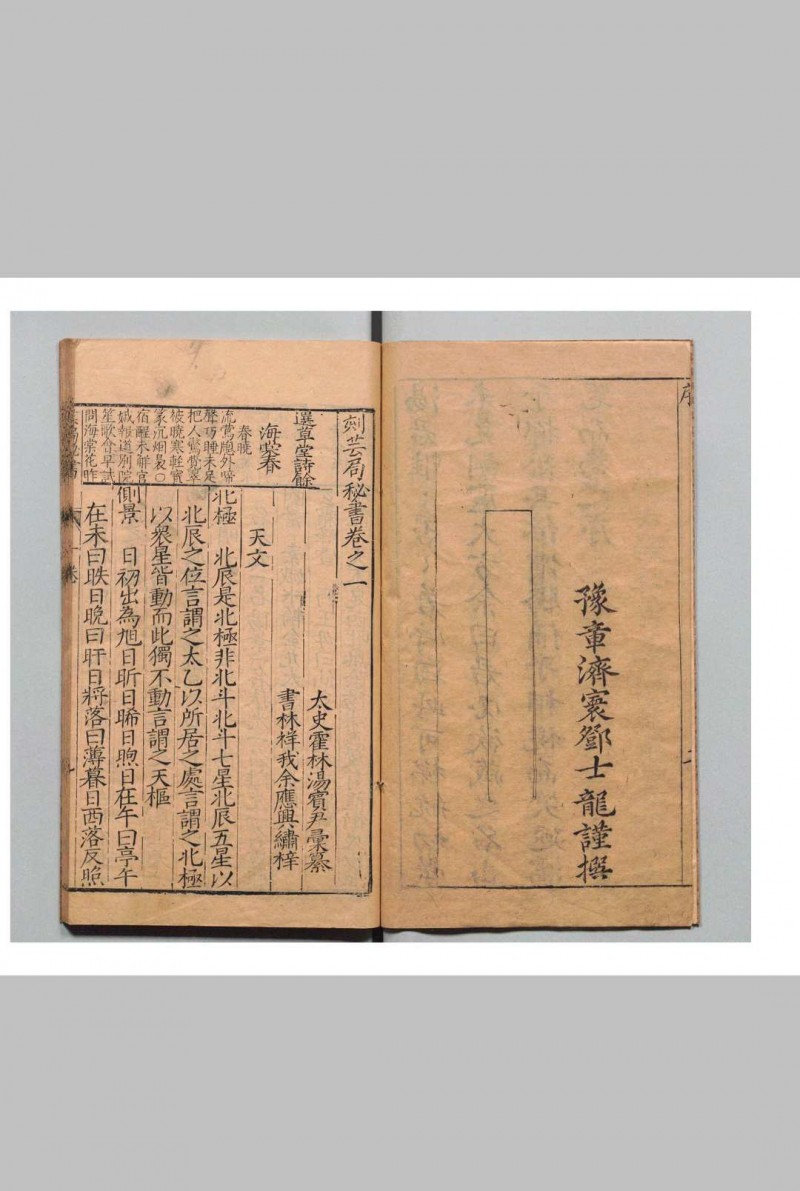 豫章濟寰鄧士龍謹撰
刻芸局秘書卷之一
太史霍林湯賓尹彚纂
書林祥我余應興繡梓
天文
北極　北辰是北極非北斗北斗七星北辰五星以
北辰之位言謂之太乙以所居之處言謂之北極
以衆星皆動而此獨不動言謂之天樞
側景　日初出為旭日昕日晞日煦日在午曰亭午
在未曰昳日晚曰旰日將落曰薄暮日西落反照
選草堂詩餘
海棠春
春曉
流鶯囱外啼
聲巧睡未足
把人驚覺翠
被曉寒輕寶
篆沉烟裊○
宿醒未觧宫
娥報道別院
笙歌會早試
問海棠花昨